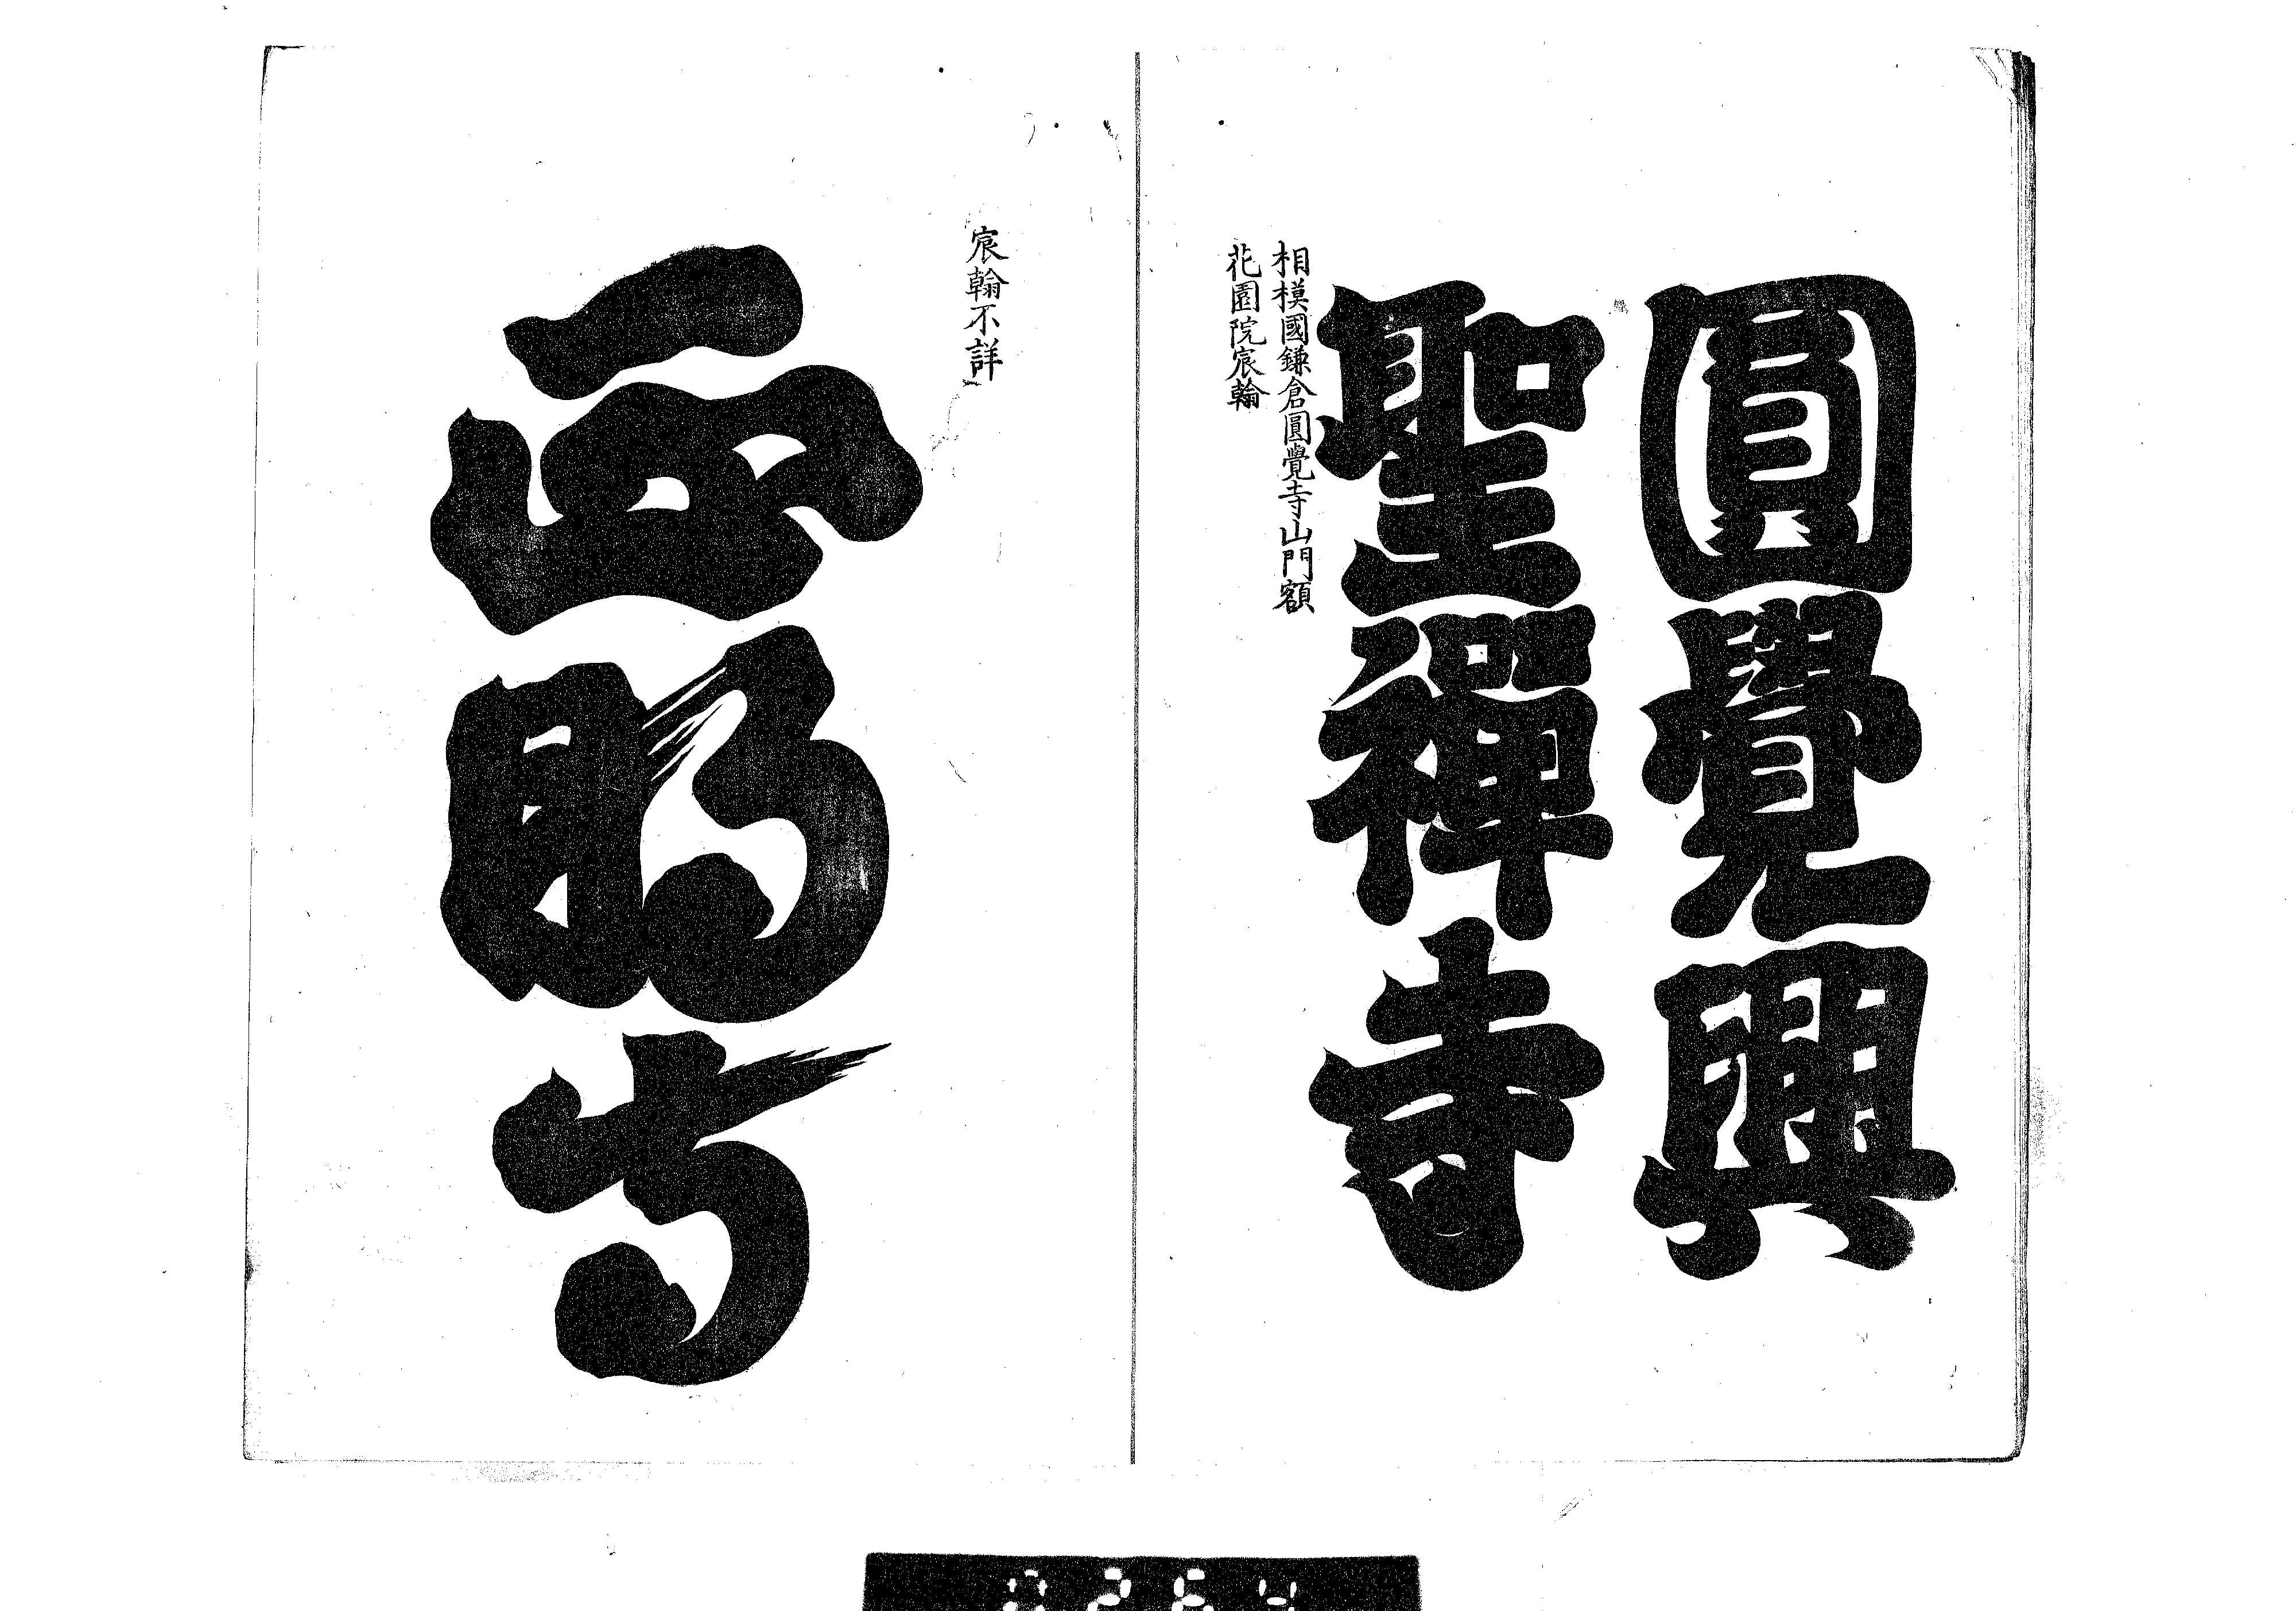 圓覺興
聖禪寺
相模國鎌倉圓覺寺山門額
花園院宸翰
宸翰不詳